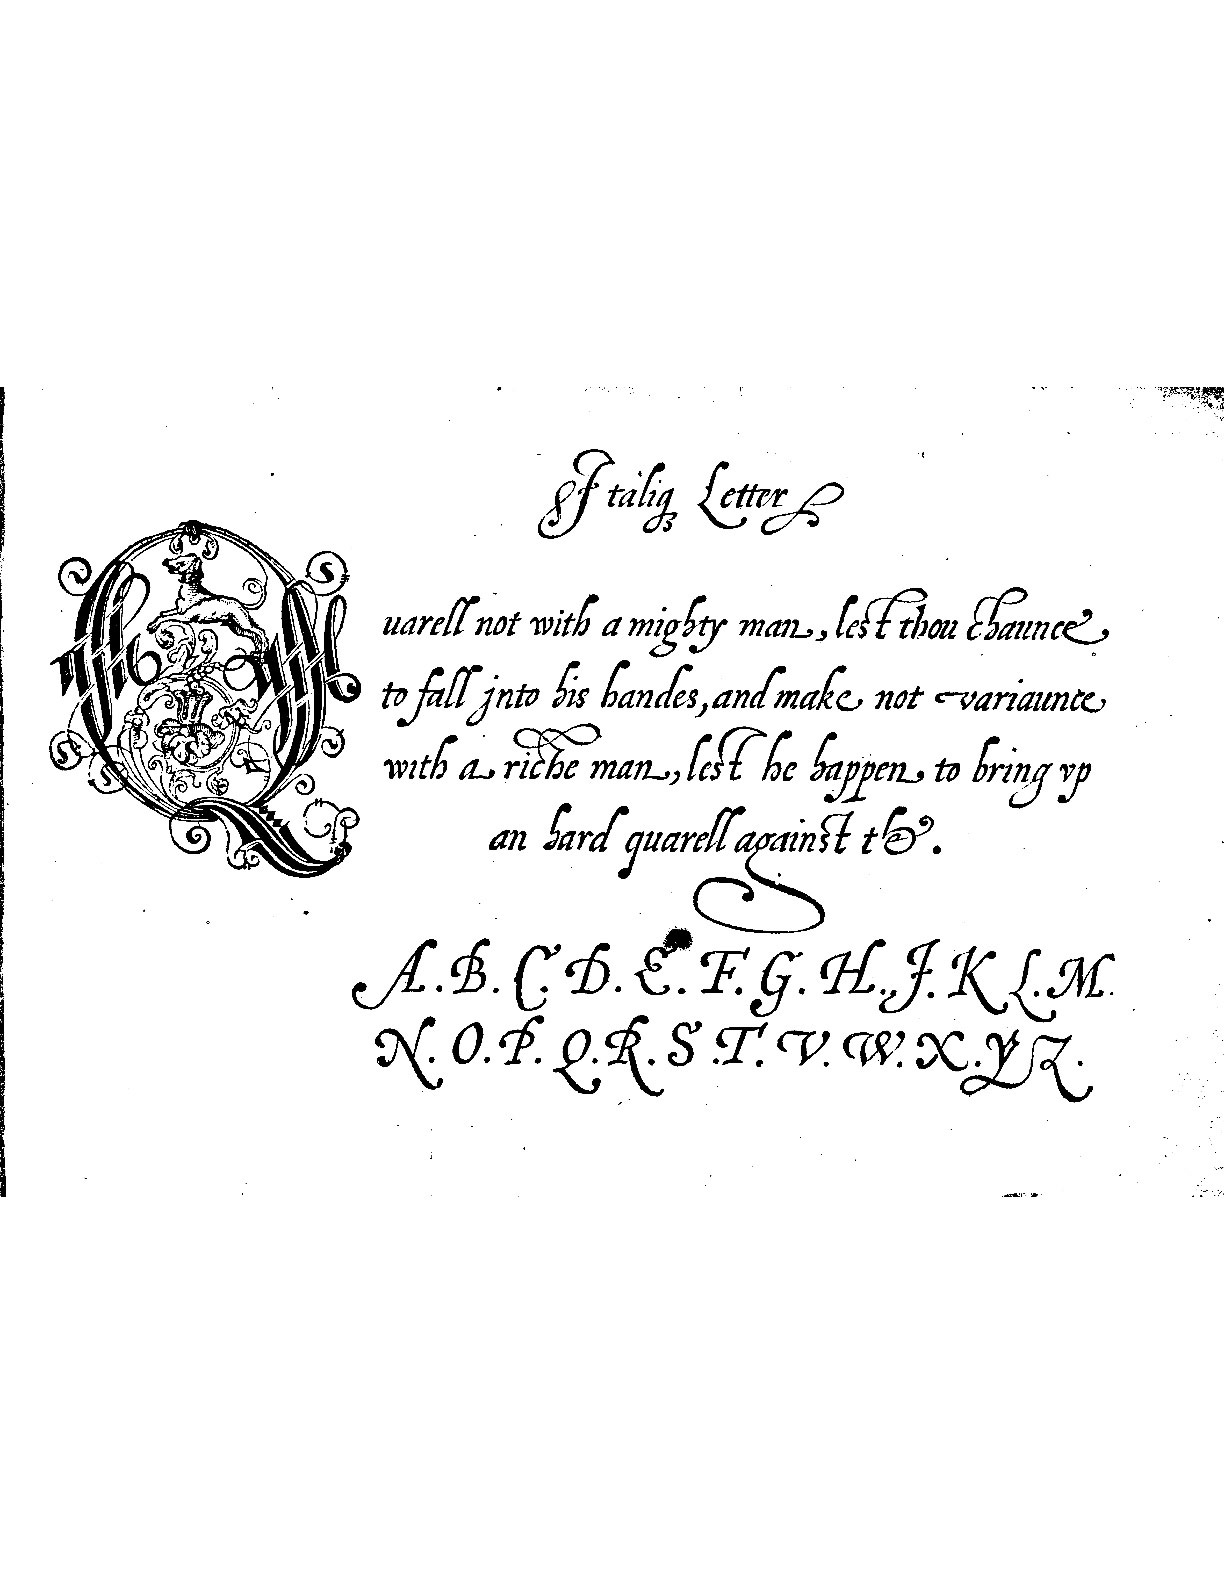 Italiq Letter
Quarell not with a mighty man, lest thou chaunce
to fall jnto his handes, and make not variaunce
with a riche man, lest he happen to bring vp
an hard quarell against the.
A. B. C. D. E. F. G. H. J. K L. M.
N. O. P. Q. R. S. T. V. W. X. Y Z.